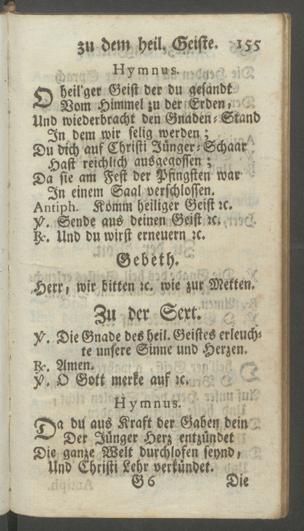 zu dem heil. Geiste. 155
Hymnus.
O heil'ger Geist der du gesandt
Vom Himmel zu der Erden,
Und wiederbracht den Gnaden-Stand
In dem wir selig werden;
Du dich auf Christi Jünger-Schaar
Hast reichlich ausgegossen;
Da sie am Fest der Pfingsten war
In einem Saal verschlossen.
Antiph. Komm heiliger Geist ꝛc.
℣. Sende aus deinen Geist ꝛc.
℟. Und du wirst erneuern ꝛc.
Gebeth.
Herr, wir bitten ꝛc. wie zur Metten.
Zu der Sext.
℣. Die Gnade des heil. Geistes erleuch-
te unsere Sinne und Herzen.
℟. Amen.
℣. O Gott merke auf ꝛc.
Hymnus.
Da du aus Kraft der Gaben dein
Der Jünger Herz entzündet
Die ganze Welt durchlofen seynd,
Und Christi Lehr verkündet.
G 6 Die